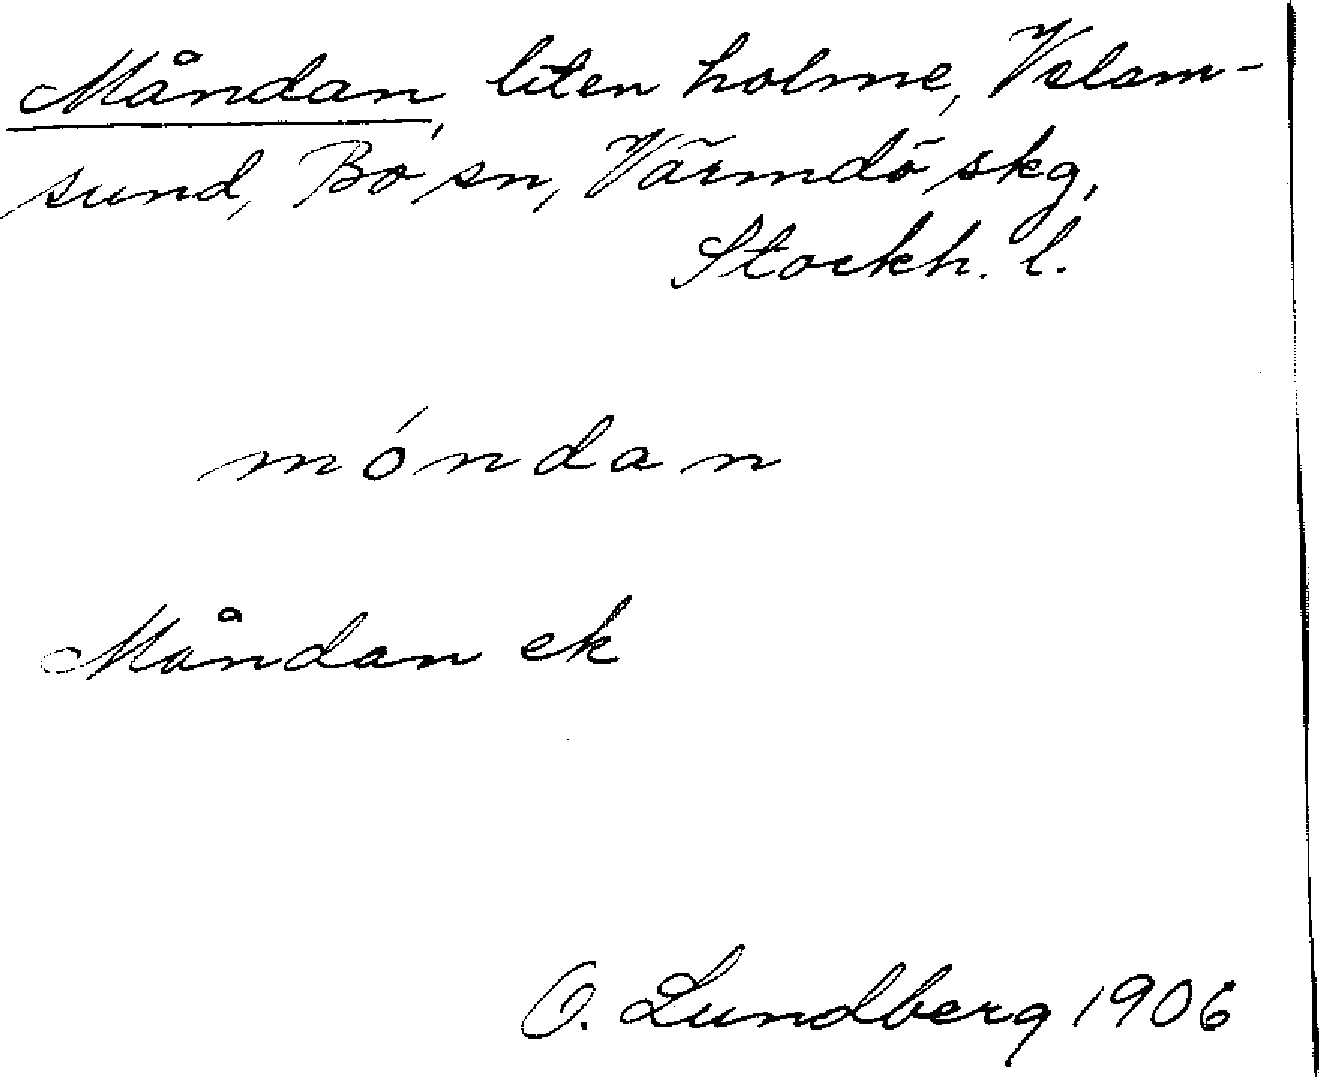 Måndan, liten holme, Velam-
sund, Bo sn, Värmdö skg,
Stockh. l.
móndan
Måndan ek
O. Lundberg 1906